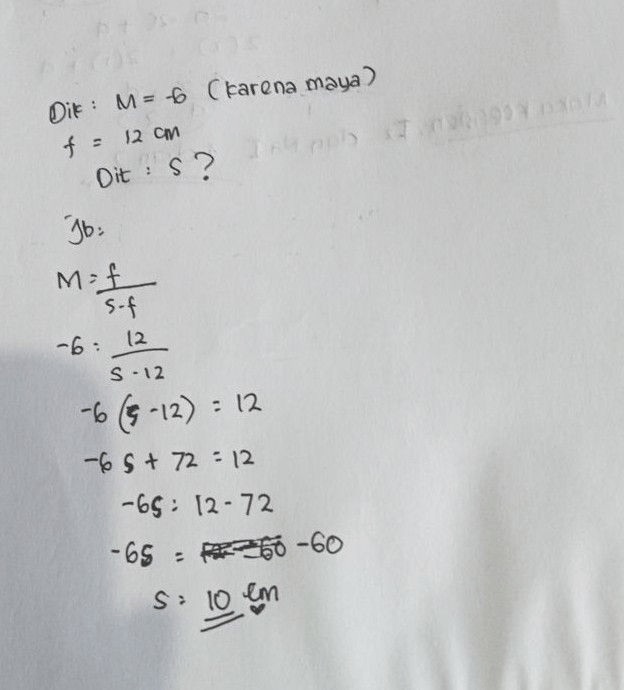 Dik : M = -6 (karena maya)
f = 12 cm
Dit : S ?
Jb:
M = f
s-f
-6 : 12
S - 12
-6 (s -12) = 12
-6 S + 72 = 12
-6S : 12 - 72
-6S = -60
S : 10 cm